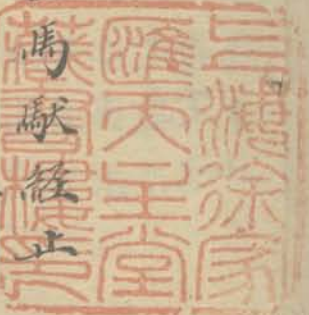 上海徐家
匯天主堂
藏書樓印
馬馱經止